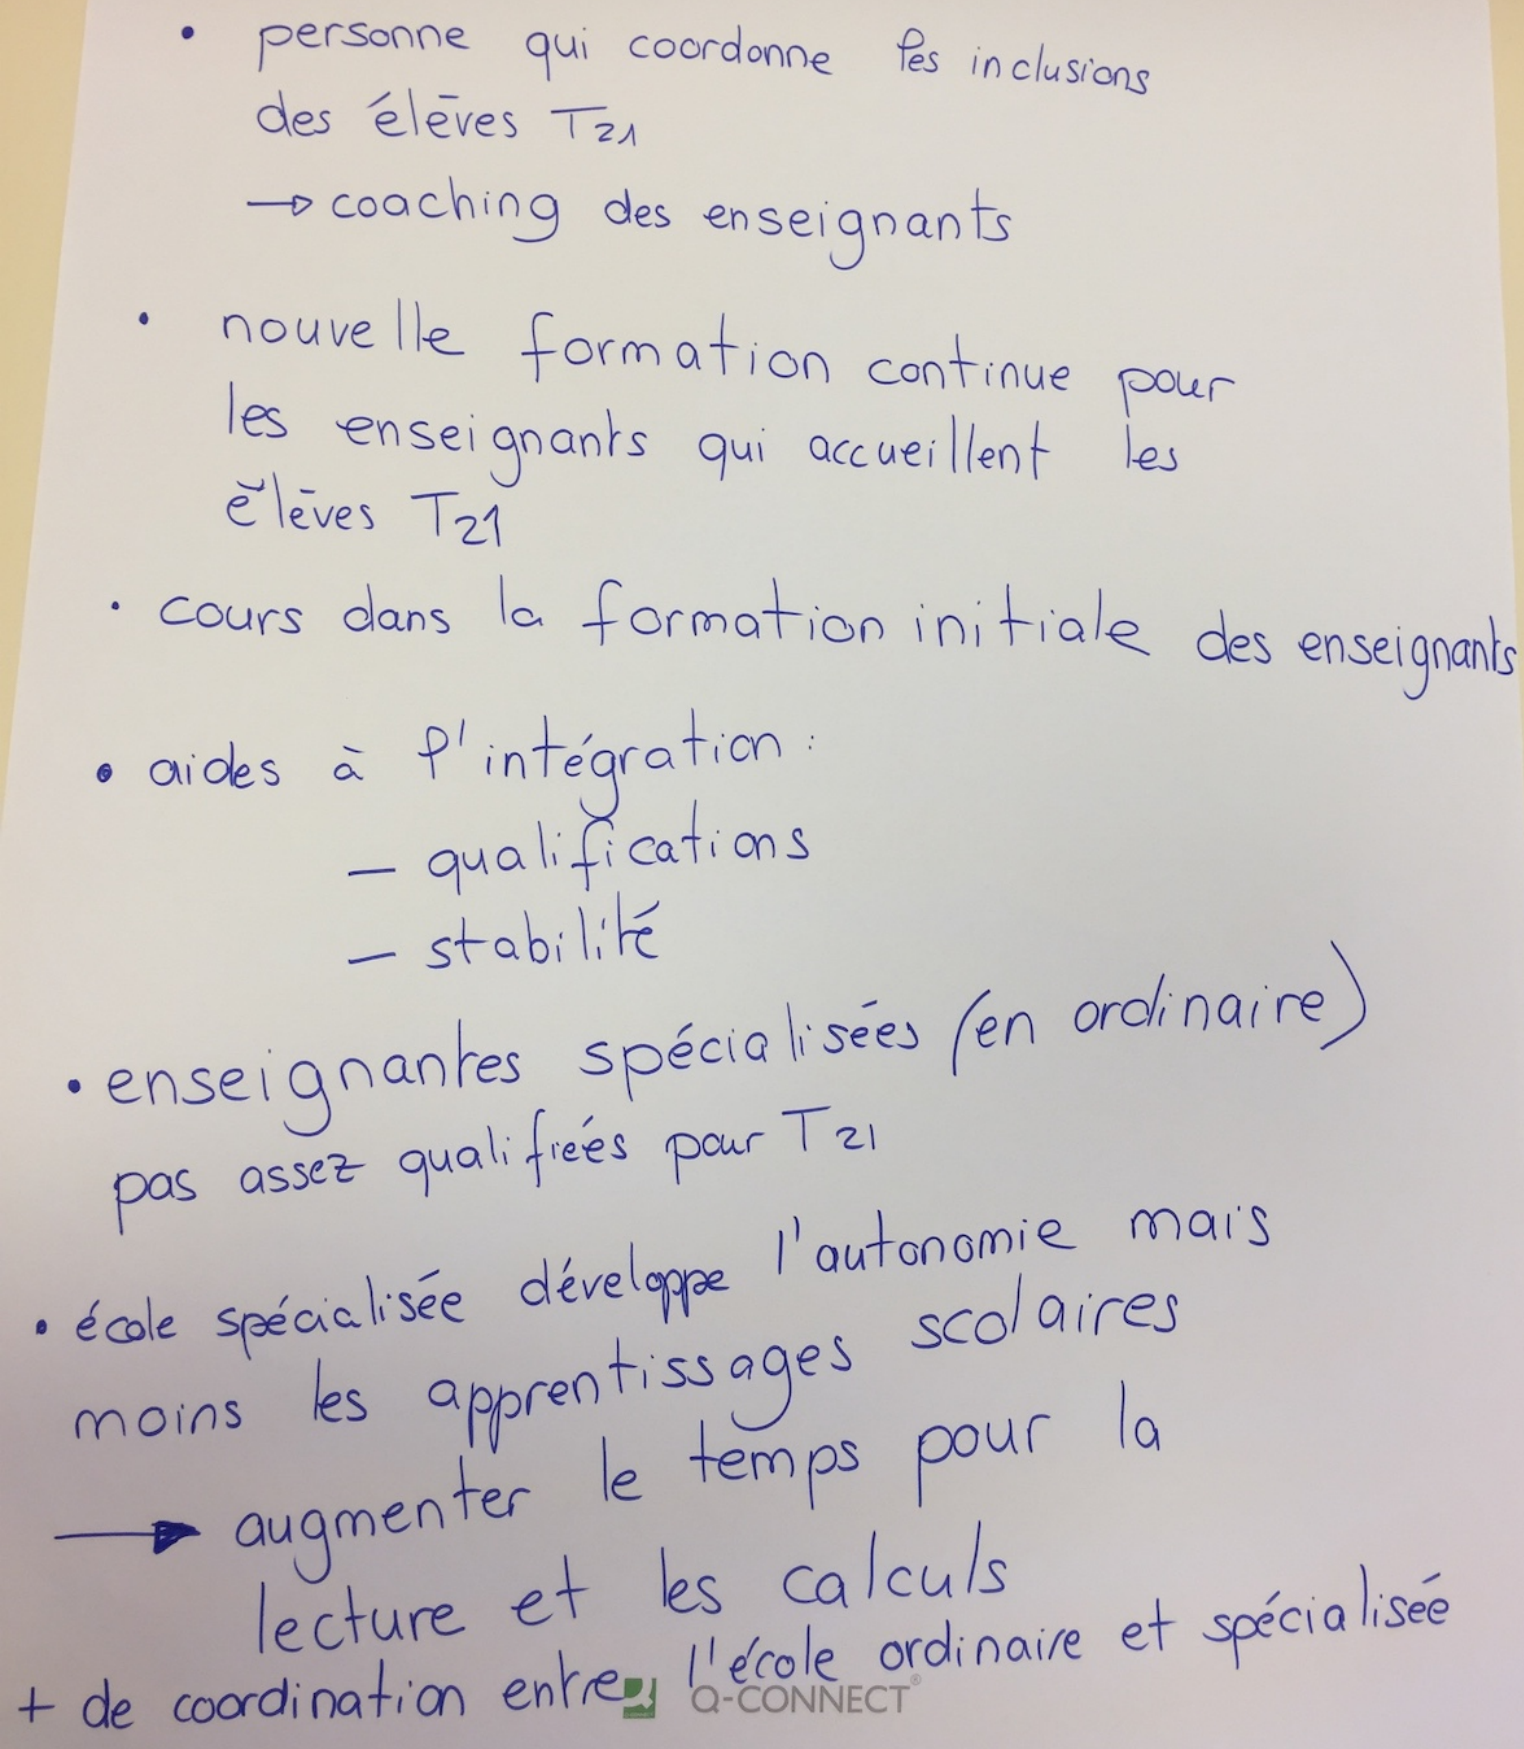 • personne qui coordonne les inclusions
des élèves T21
→ coaching des enseignants
• nouvelle formation continue pour
les enseignants qui accueillent les
élèves T21
• cours dans la formation initiale des enseignants
• aides à l'intégration :
— qualifications
— stabilité
• enseignantes spécialisées (en ordinaire)
pas assez qualifiées pour T21
• école spécialisée développe l'autonomie mais
moins les apprentissages scolaires
→ augmenter le temps pour la
lecture et les calculs
+ de coordination entre l'école ordinaire et spécialisée
Q-CONNECT®